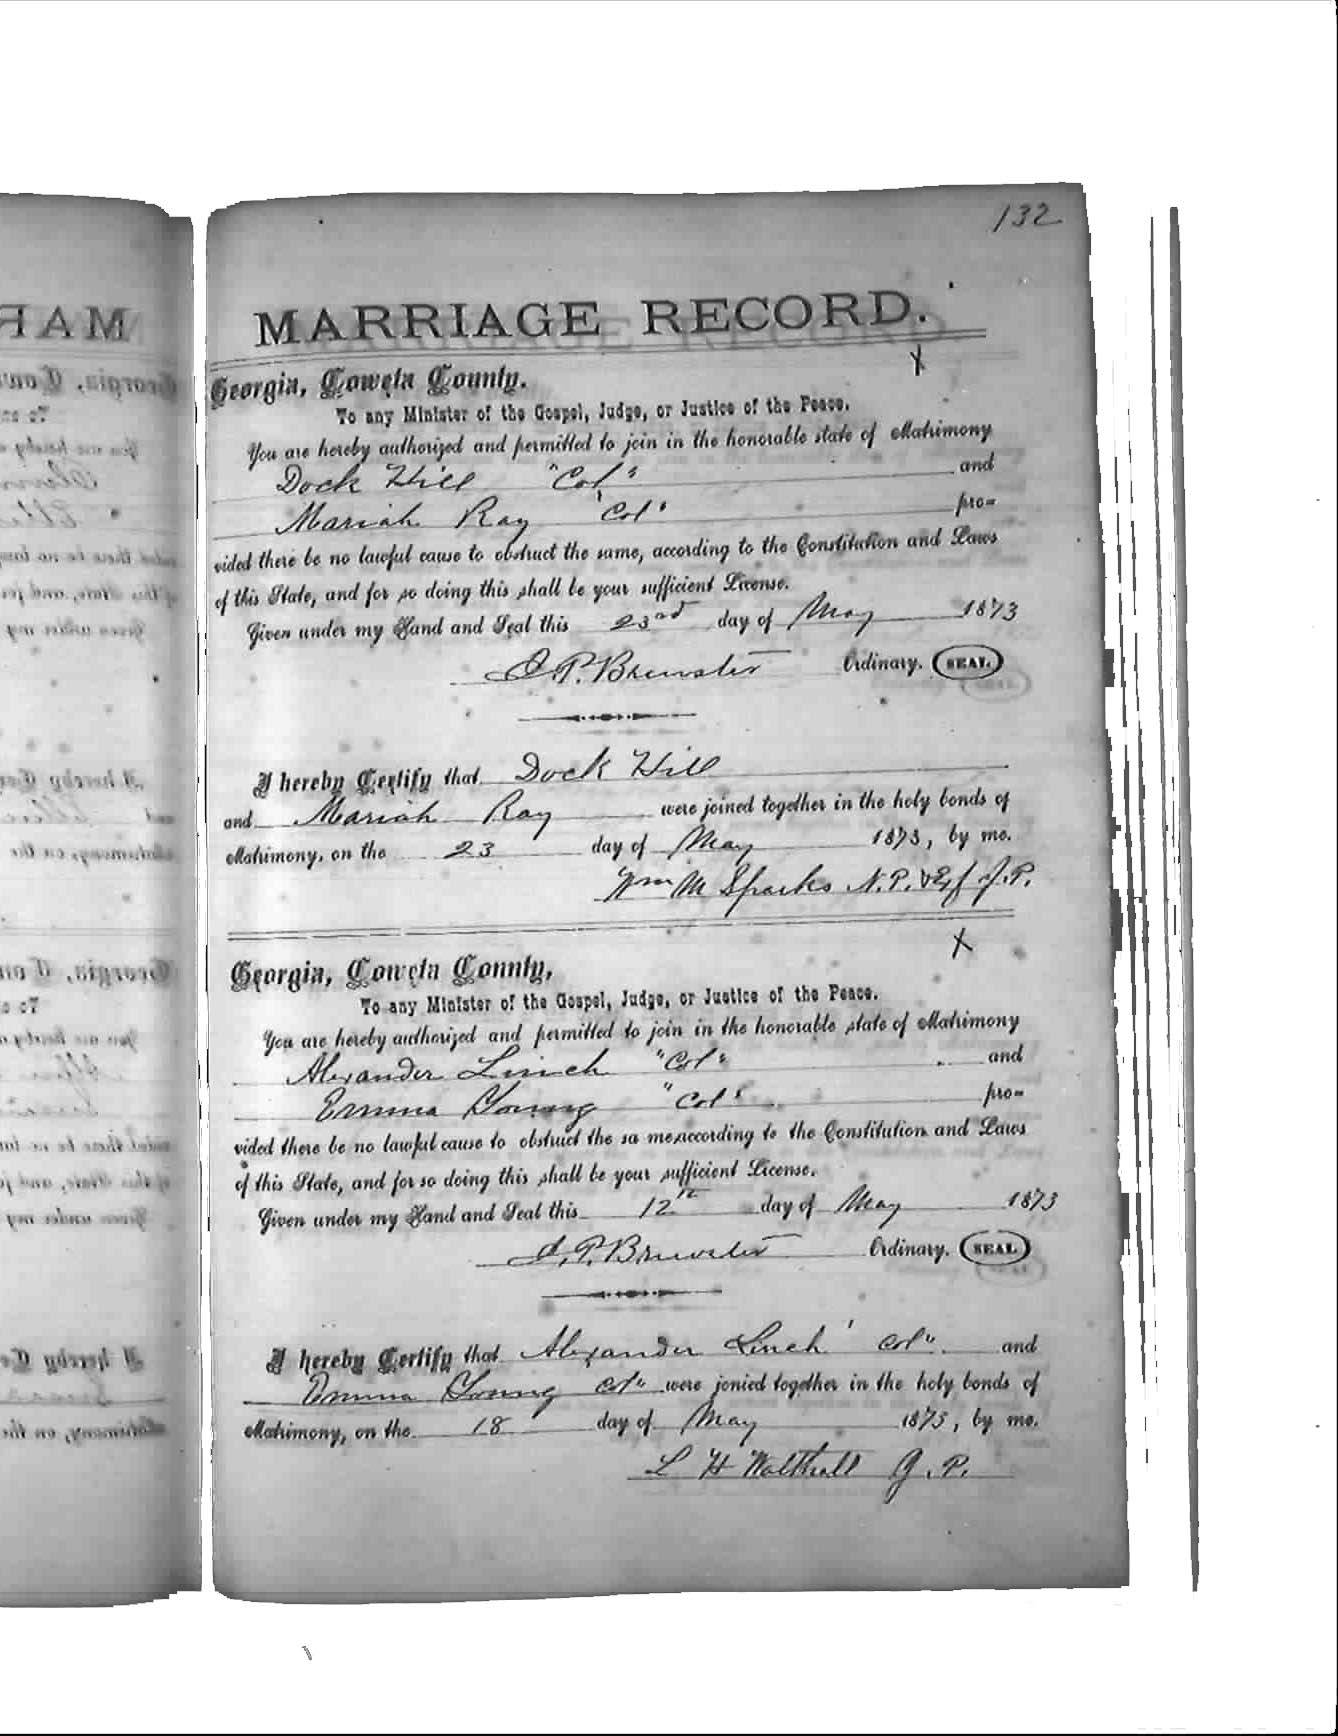 132
MARRIAGE RECORD.
X
Georgia, Coweta County.
To any Minister of the Gospel, Judge, or Justice of the Peace.
You are hereby authorized and permitted to join in the honorable state of Matrimony
Dock Hill "Col" and
Mariah Ray 'Col' pro=
vided there be no lawful cause to obstruct the same, according to the Constitution and Laws
of this State, and for so doing this shall be your sufficient License.
Given under my Hand and Seal this 23rd day of May 1873
J. P. Brewster Ordinary. SEAL.
I hereby Certify that Dock Hill
and Mariah Ray were joined together in the holy bonds of
Matrimony, on the 23 day of May 1873, by me.
Wm M Sparks N.P. & Exf J.P.
X
Georgia, Coweta Connty,
To any Minister of the Gospel, Judge, or Justice of the Peace.
You are hereby authorized and permitted to join in the honorable state of Matrimony
Alexander Linch "Col" and
Emma Young "Col" pro=
vided there be no lawful cause to obstruct the sa me, according to the Constitution and Laws
of this State, and for so doing this shall be your sufficient License.
Given under my Hand and Seal this 12th day of May 1873
J. P. Brewster Ordinary. SEAL
I hereby Certify that Alexander Linch 'Col" and
Emma Young Col" were jonied together in the holy bonds of
Matrimony, on the 18 day of May 1873, by me.
L H Walthall J. P.